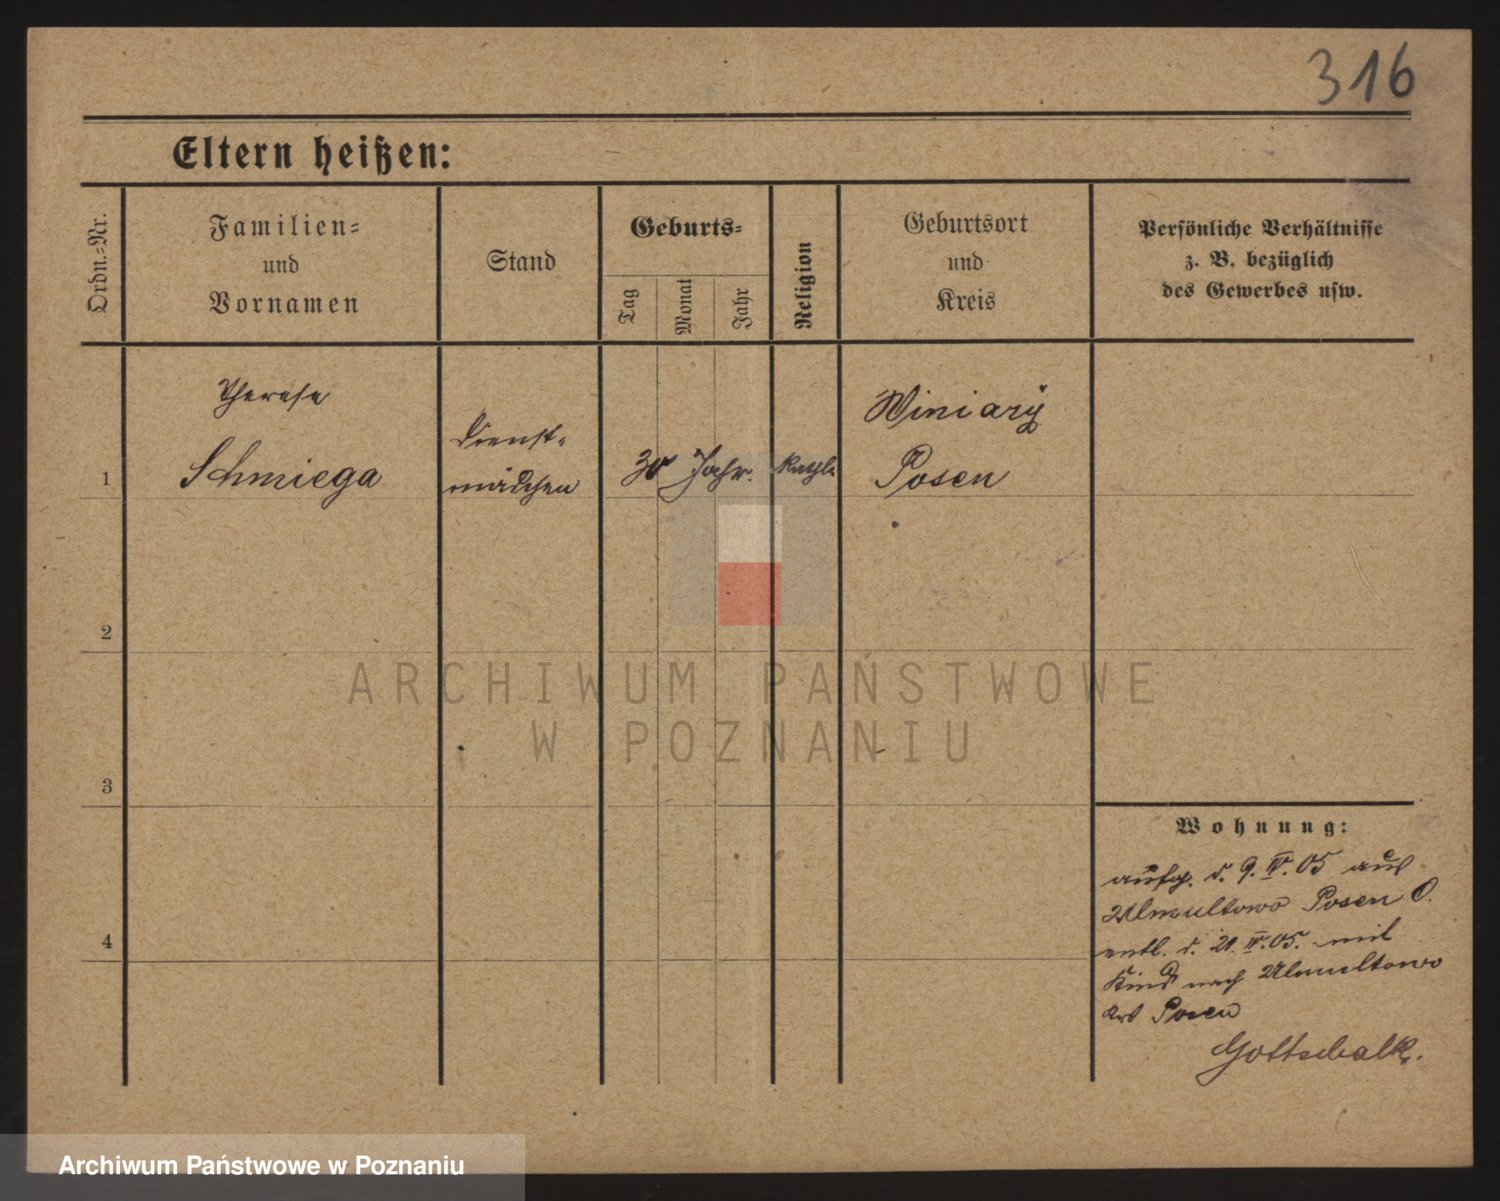 316
Eltern heißen:
Ordn.-Nr.
Familien-
und
Vornamen
Stand
Geburts-
Tag
Monat
Jahr
Religion
Geburtsort
und
Kreis
Persönliche Verhältnisse
z. B. bezüglich
des Gewerbes usw.
1
Therese
Schmiega
Dienst-
mädchen
30 Jahr.
Kathl.
Winiary
Posen
2
3
4
Wohnung:
aufg. d. 9. IV. 05 aus
Umultowo Posen O.
entl. d. 21. IV. 05. mit
Kind nach Umultowo
Krs Posen
Gottschalk.
ARCHIWUM PAŃSTWOWE
W POZNANIU
Archiwum Państwowe w Poznaniu